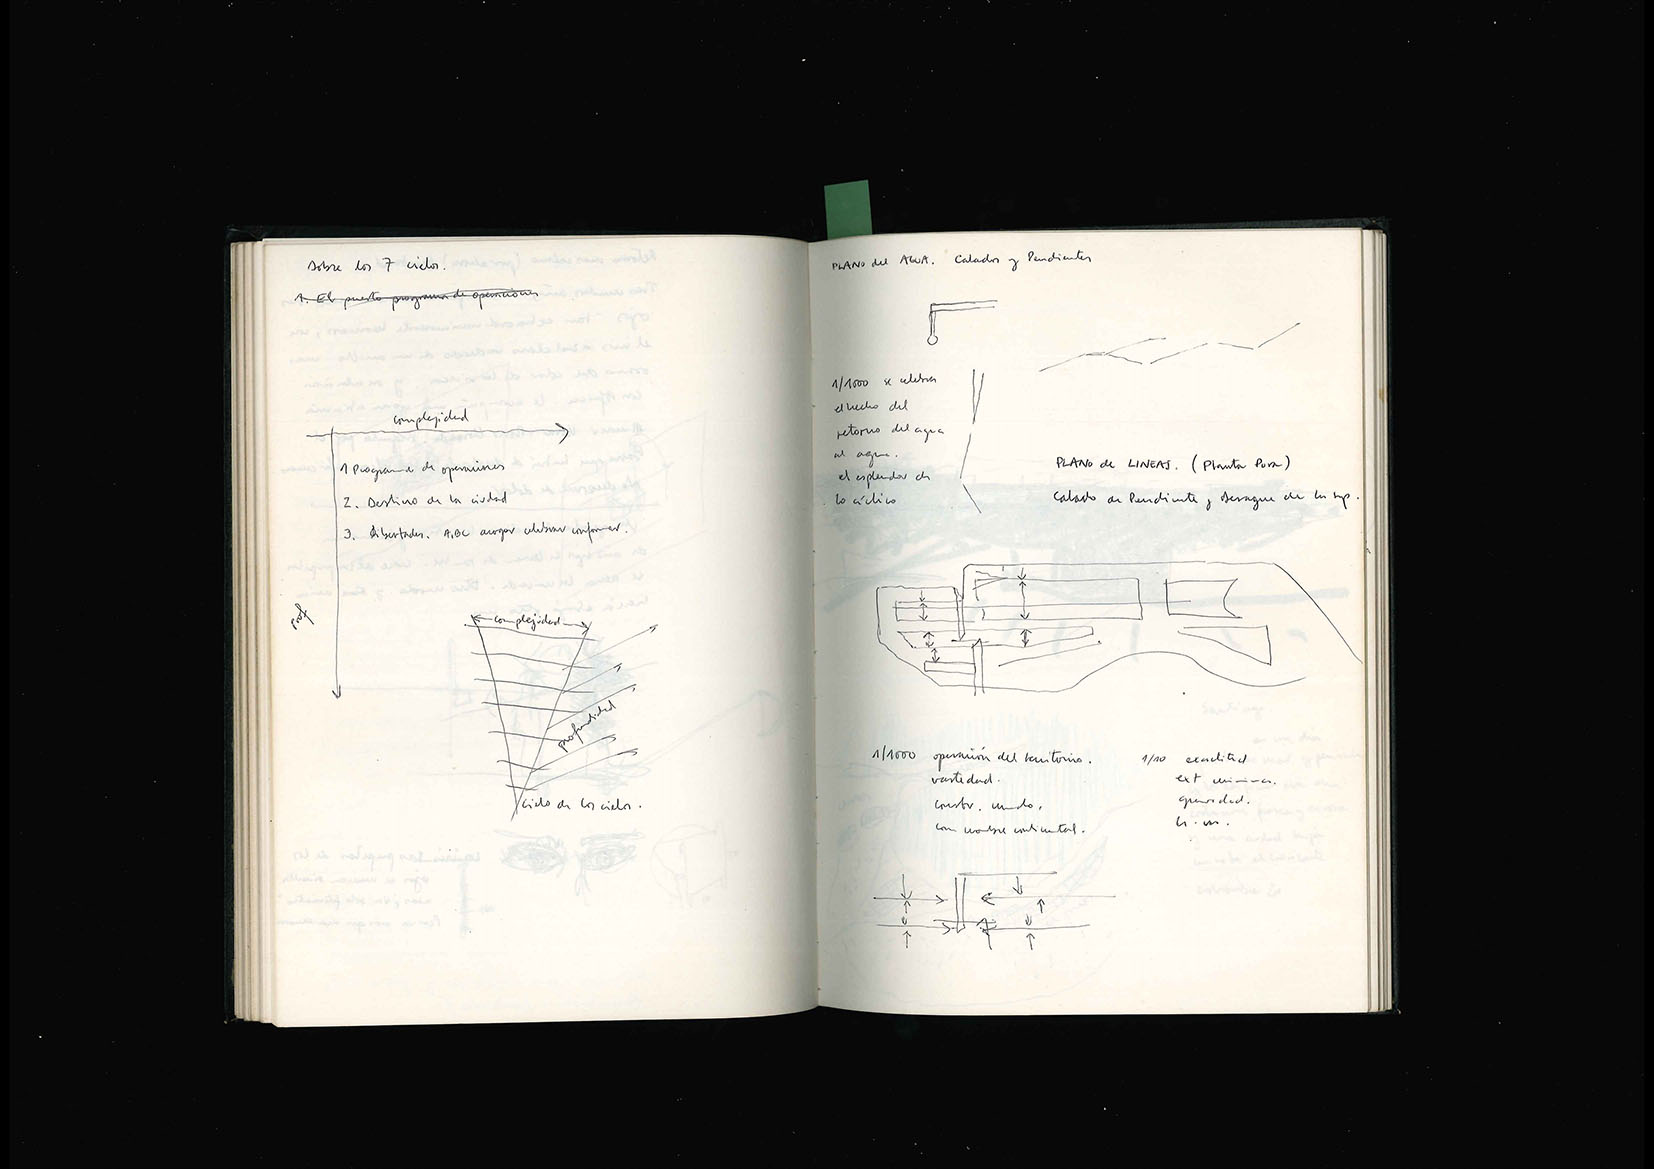 Sobre los 7 ciclos.
1. El puerto programa de operaciones
complejidad
1 Programa de operaciones
2. Destino de la ciudad
3. Libertades. ABC acoger celebrar conformar.
prof
complejidad
profundidad
Ciclo de los ciclos.
PLANO del AGUA. Calados y Pendientes
1/1000 se celebra
el hecho del
retorno del agua
al agua.
el esplendor de
lo cíclico
PLANO de LINEAS. (Planta Pura)
Calado de Pendiente y Desague de la sup.
1/1000 operación del territorio.
vastedad.
constr. mundo,
con nombre continental.
1/10 exactitud
ext minima.